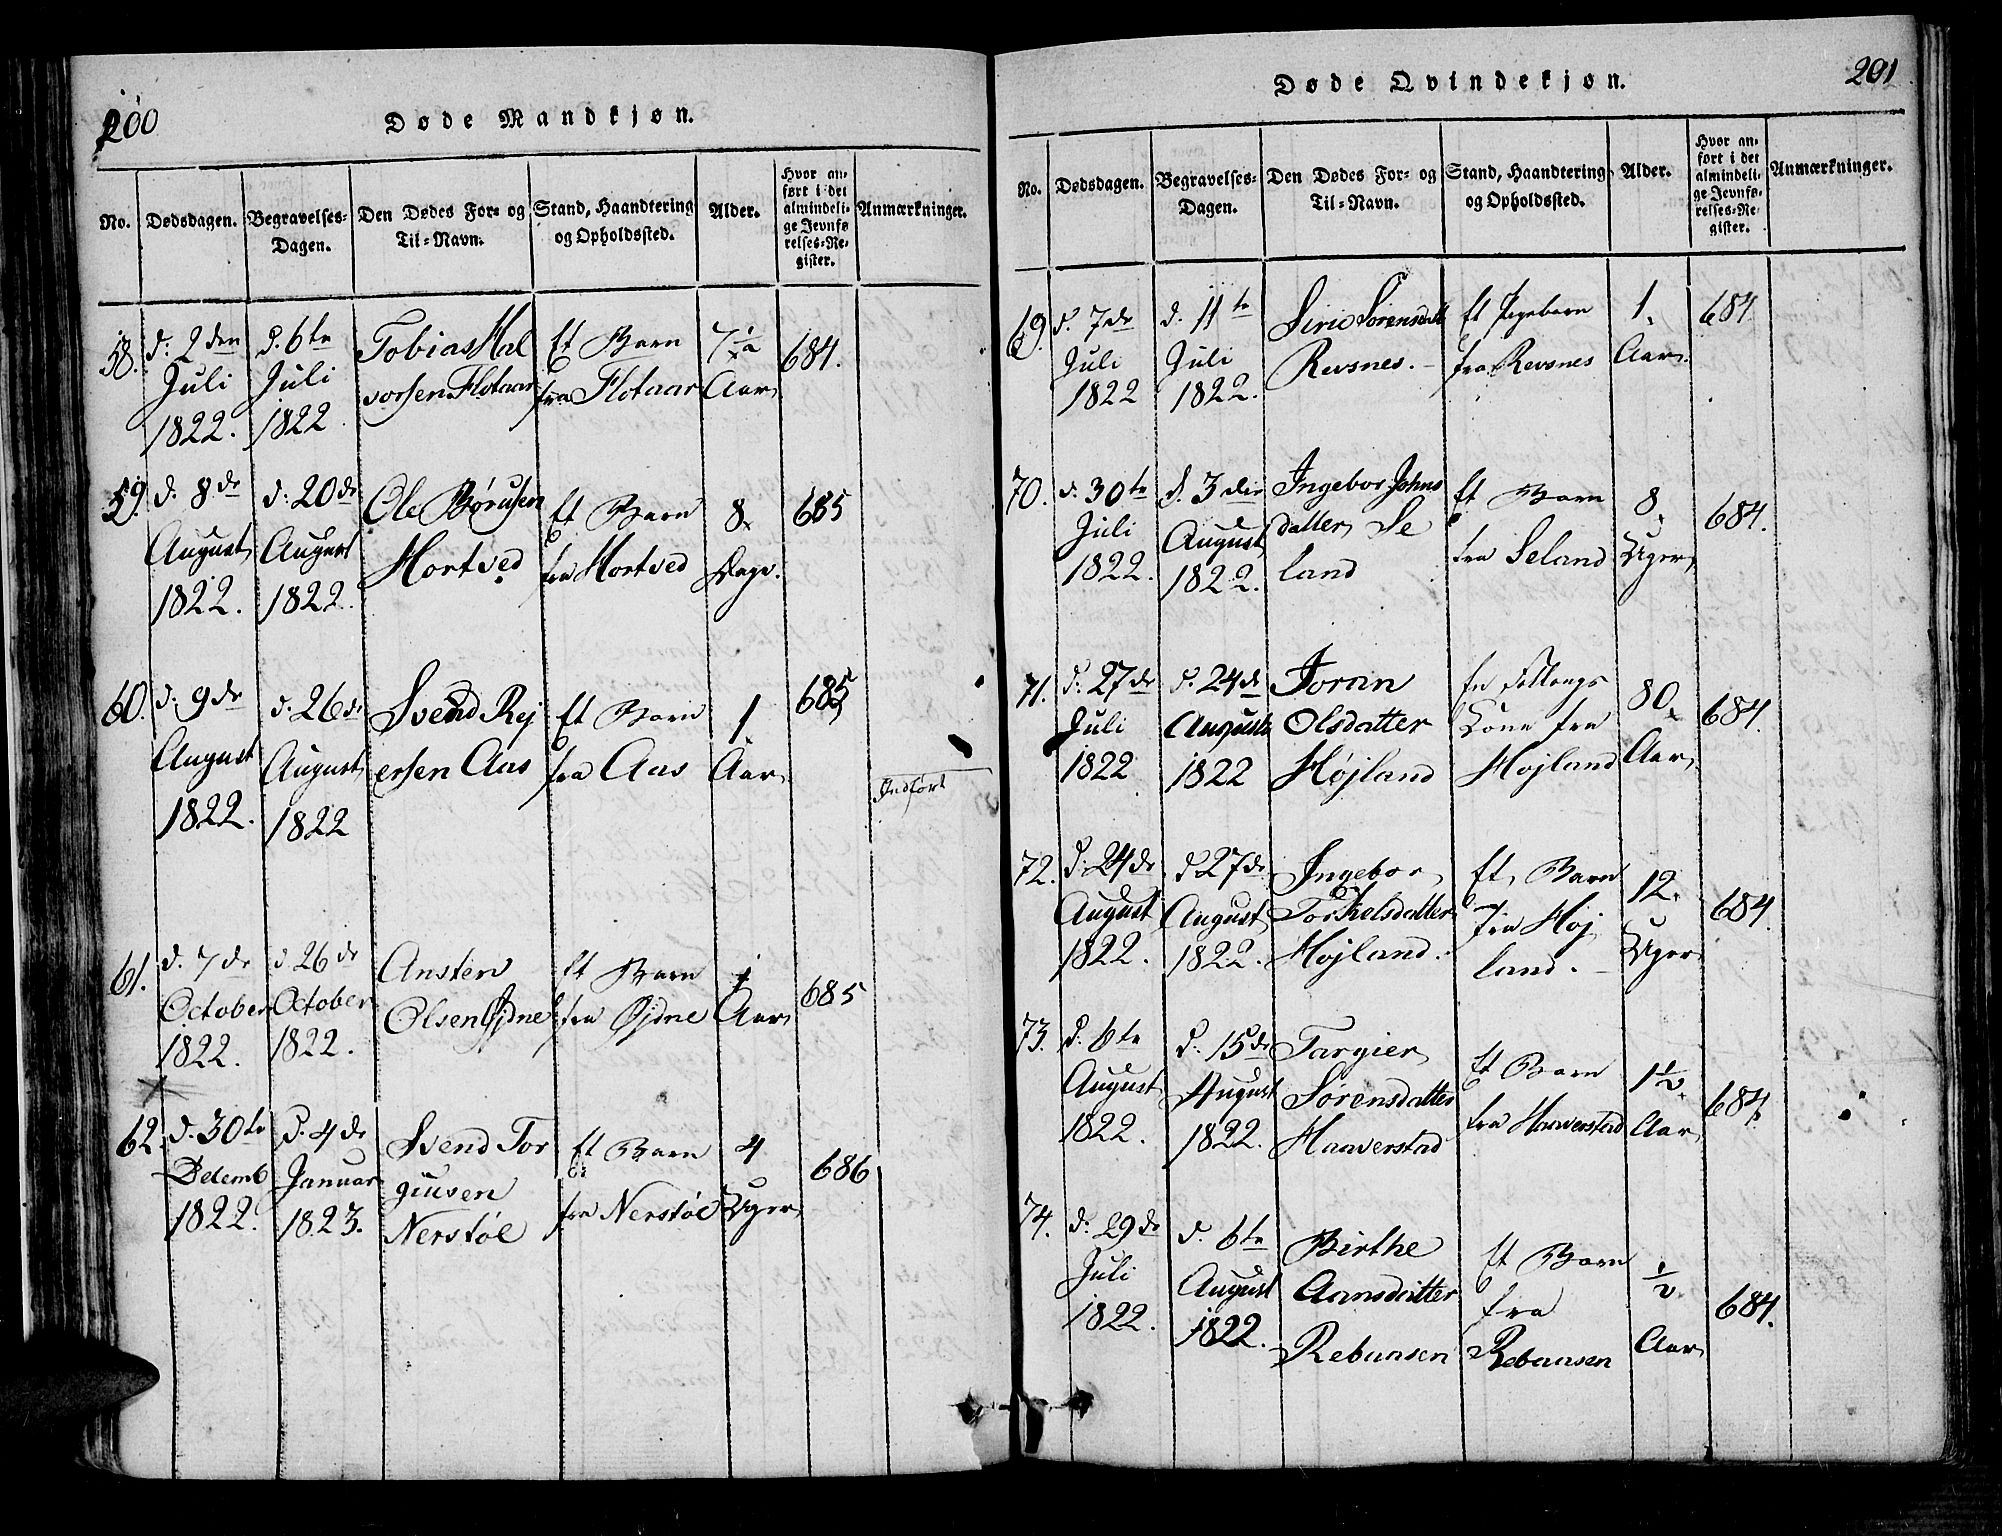 200
Døde Mandkjøn.
No. Dødsdagen. Begravelses-Dagen. Den Dødes For- og Til-Navn. Stand, Haandtering og Opholdssted. Alder. Hvor anført i det almindelige Jevnførelses-Register. Anmærkninger.
58. d. 2den d. 6te Tobias Hal Et Barn 7½ 684.
Juli Juli vorsen Flotaar fra Flotaar Aar
1822. 1822
59. d. 8de d. 20de Ole Børusen Et Barn 8 685
August August Hortved fra Hortved Dage.
1822. 1822.
60. d. 9de d. 26de Svend Rej Et Barn 1 685
August August ersen Aas fra Aas Aar
1822. 1822
Indført
61. d. 7de d. 26de Ansten Et Barn 1 685
October October Olsen Øjdne fra Øjdne Aar
1822. 1822.
62. d. 30te d. 4de Svend Tor Et Barn 4 686
Desemb Januar giusen fra Nerstøe Uger
1822. 1823. Nerstøe
201
Døde Qvindekjøn.
No. Dødsdagen. Begravelses-Dagen. Den Dødes For- og Til-Navn. Stand, Haandtering og Opholdssted. Alder. Hvor anført i det almindelige Jevnførelses-Register. Anmærkninger.
69. d. 7de d. 11te Sirie Sørensdatt Et Pigebarn 1 684
Juli Juli Revsnes. fra Revsnes Aar.
1822 1822.
70. d. 30te d. 3die Ingebor Johns Et Barn 8 684.
Juli August datter Se fra Seland Uger
1822. 1822. land
71. d. 27de d. 24de Joran En 80 684.
Juli August Olsdatter Kone fra Aar
1822 1822 Højland Højland
72. d. 24de d. 27de Ingebor Et Barn 12 684.
August August Torkelsdatter fra Høj Uger
1822. 1822. Højland. land.
73. d. 6te d. 15de Targier Et Barn 1½ 684.
August August Sørensdatter fra Haaverstad Aar
1822. 1822. Haaverstad
74. d. 29de d. 6te Birthe Et Barn ½ 684.
Juli August Aansdatter fra Aar
1822. 1822. Rebunsen Rebaasen